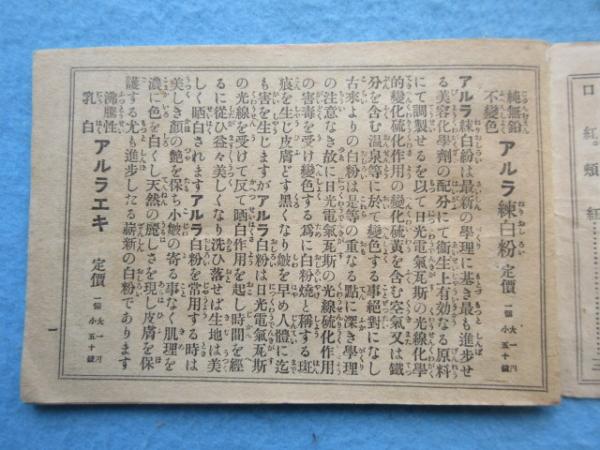 口紅。頰紅
三
純無鉛
不變色
アルラ練白粉
定價 一個 大一円 小五十錢
アルラ練白粉は最新の學理に基き最も進步せ
る美容化學劑の配分にて衞生上有効なる原料
にて調製せるを以て日光電氣瓦斯の光線化學
的變化硫化作用の變化硫黃を含む空氣又は鐵
分を含む温泉等に於て變色する事絕對になし
古來よりの白粉は是等の重なる點に深き學理
の注意なき故に日光電氣瓦斯の光線硫化作用
の害毒を受け變色する爲に白粉燒と稱する斑
痕を生じ皮膚どす黑くなり皺を早め人體に迄
も害を生じますがアルラ白粉は日光電氣瓦斯
の光線を受けて反て晒白作用を起し時間を經
るに從ひ益々美しくなり洗ひ落せば生地は美
しく晒白されますアルラ白粉を常用する時は
美しき顏の艷を保ち小皺の寄る事なく肌理を
濃に色を白くし天然の麗しさを現し皮膚を保
護する尤も進步したる嶄新の白粉であります
沸騰性
乳白
アルラエキ
定價 一個 大一円 小五十錢
一